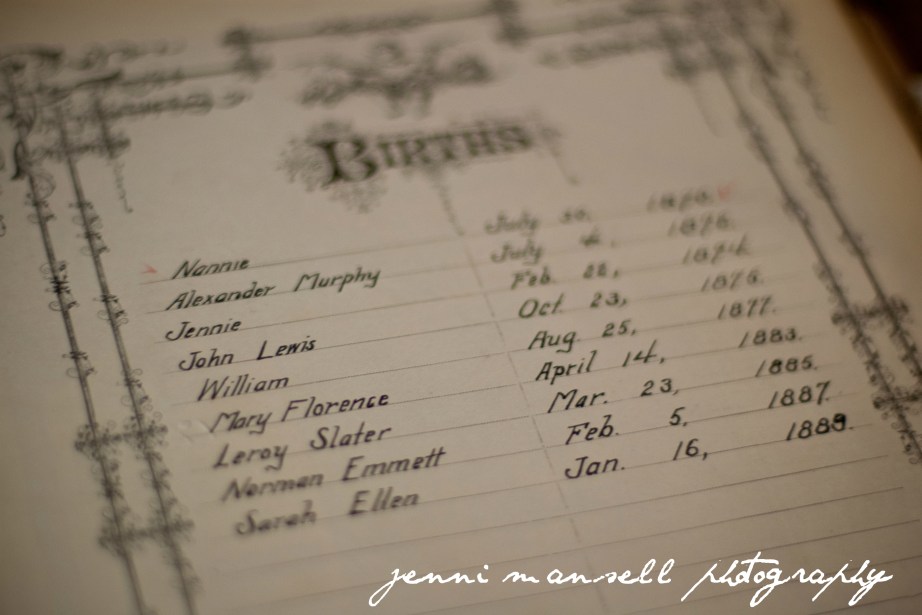 BIRTHS
Nannie July
Alexander Murphy July 4,
Jennie Feb. 1874.
John Lewis Oct. 23, 1875.
William Aug 25, 1877.
Mary Florence April 14, 1883.
Leroy Slater Mar. 23, 1885.
Norman Emmett Feb. 5, 1887.
Sarah Ellen Jan. 16, 1889.
jenni mansell photography